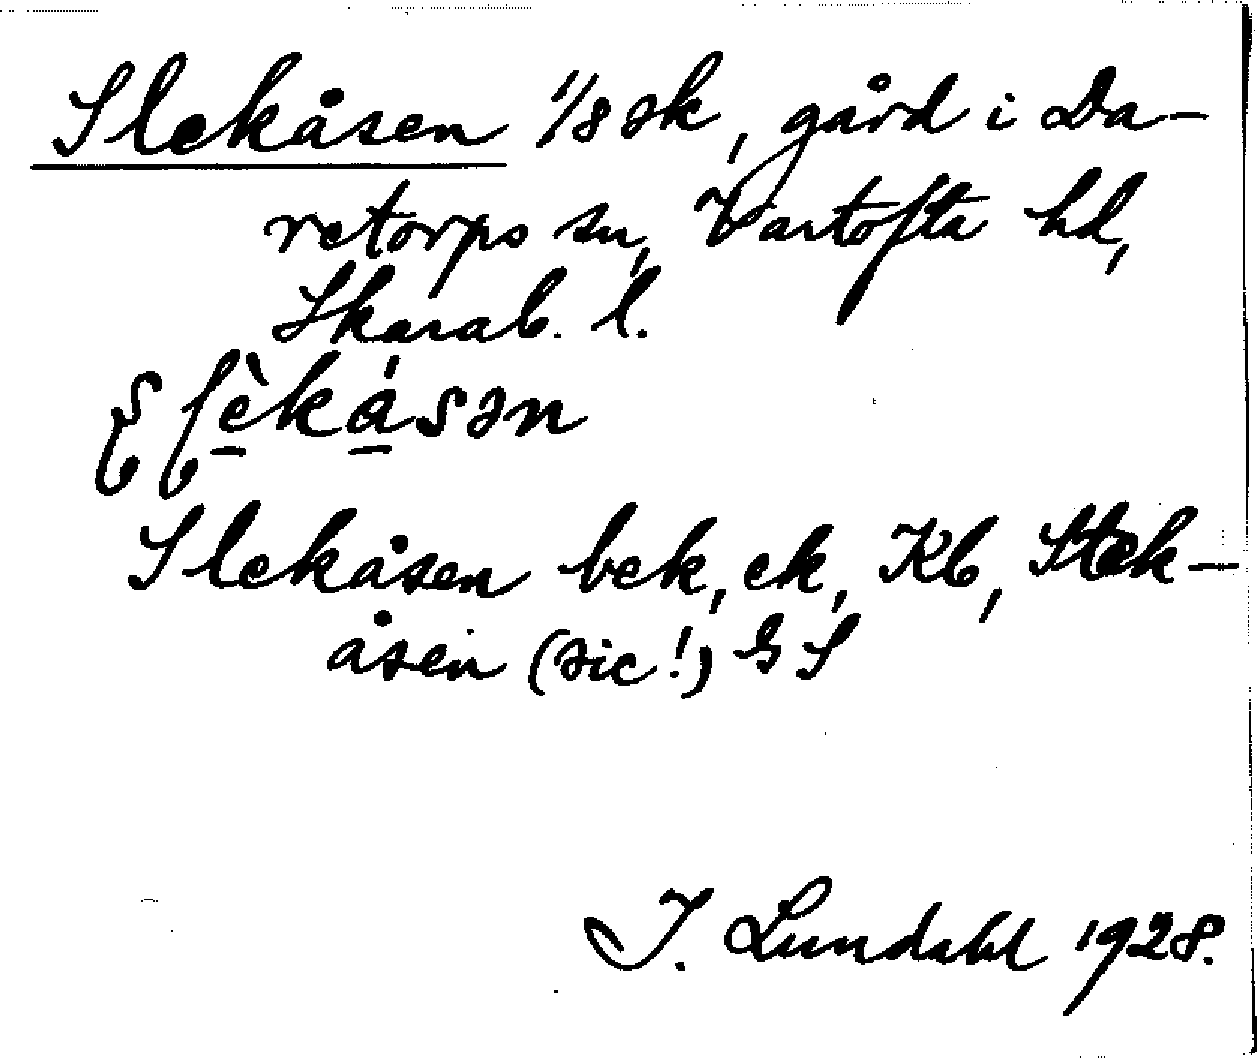 Slekåsen 1/8 sk, gård i Da-
retorps sn, Vartofta hd,
Skarab. l.
Slekåsen bek, ek, Kb, Stek-
åsen (sic!) GS
I. Lundahl 1928.